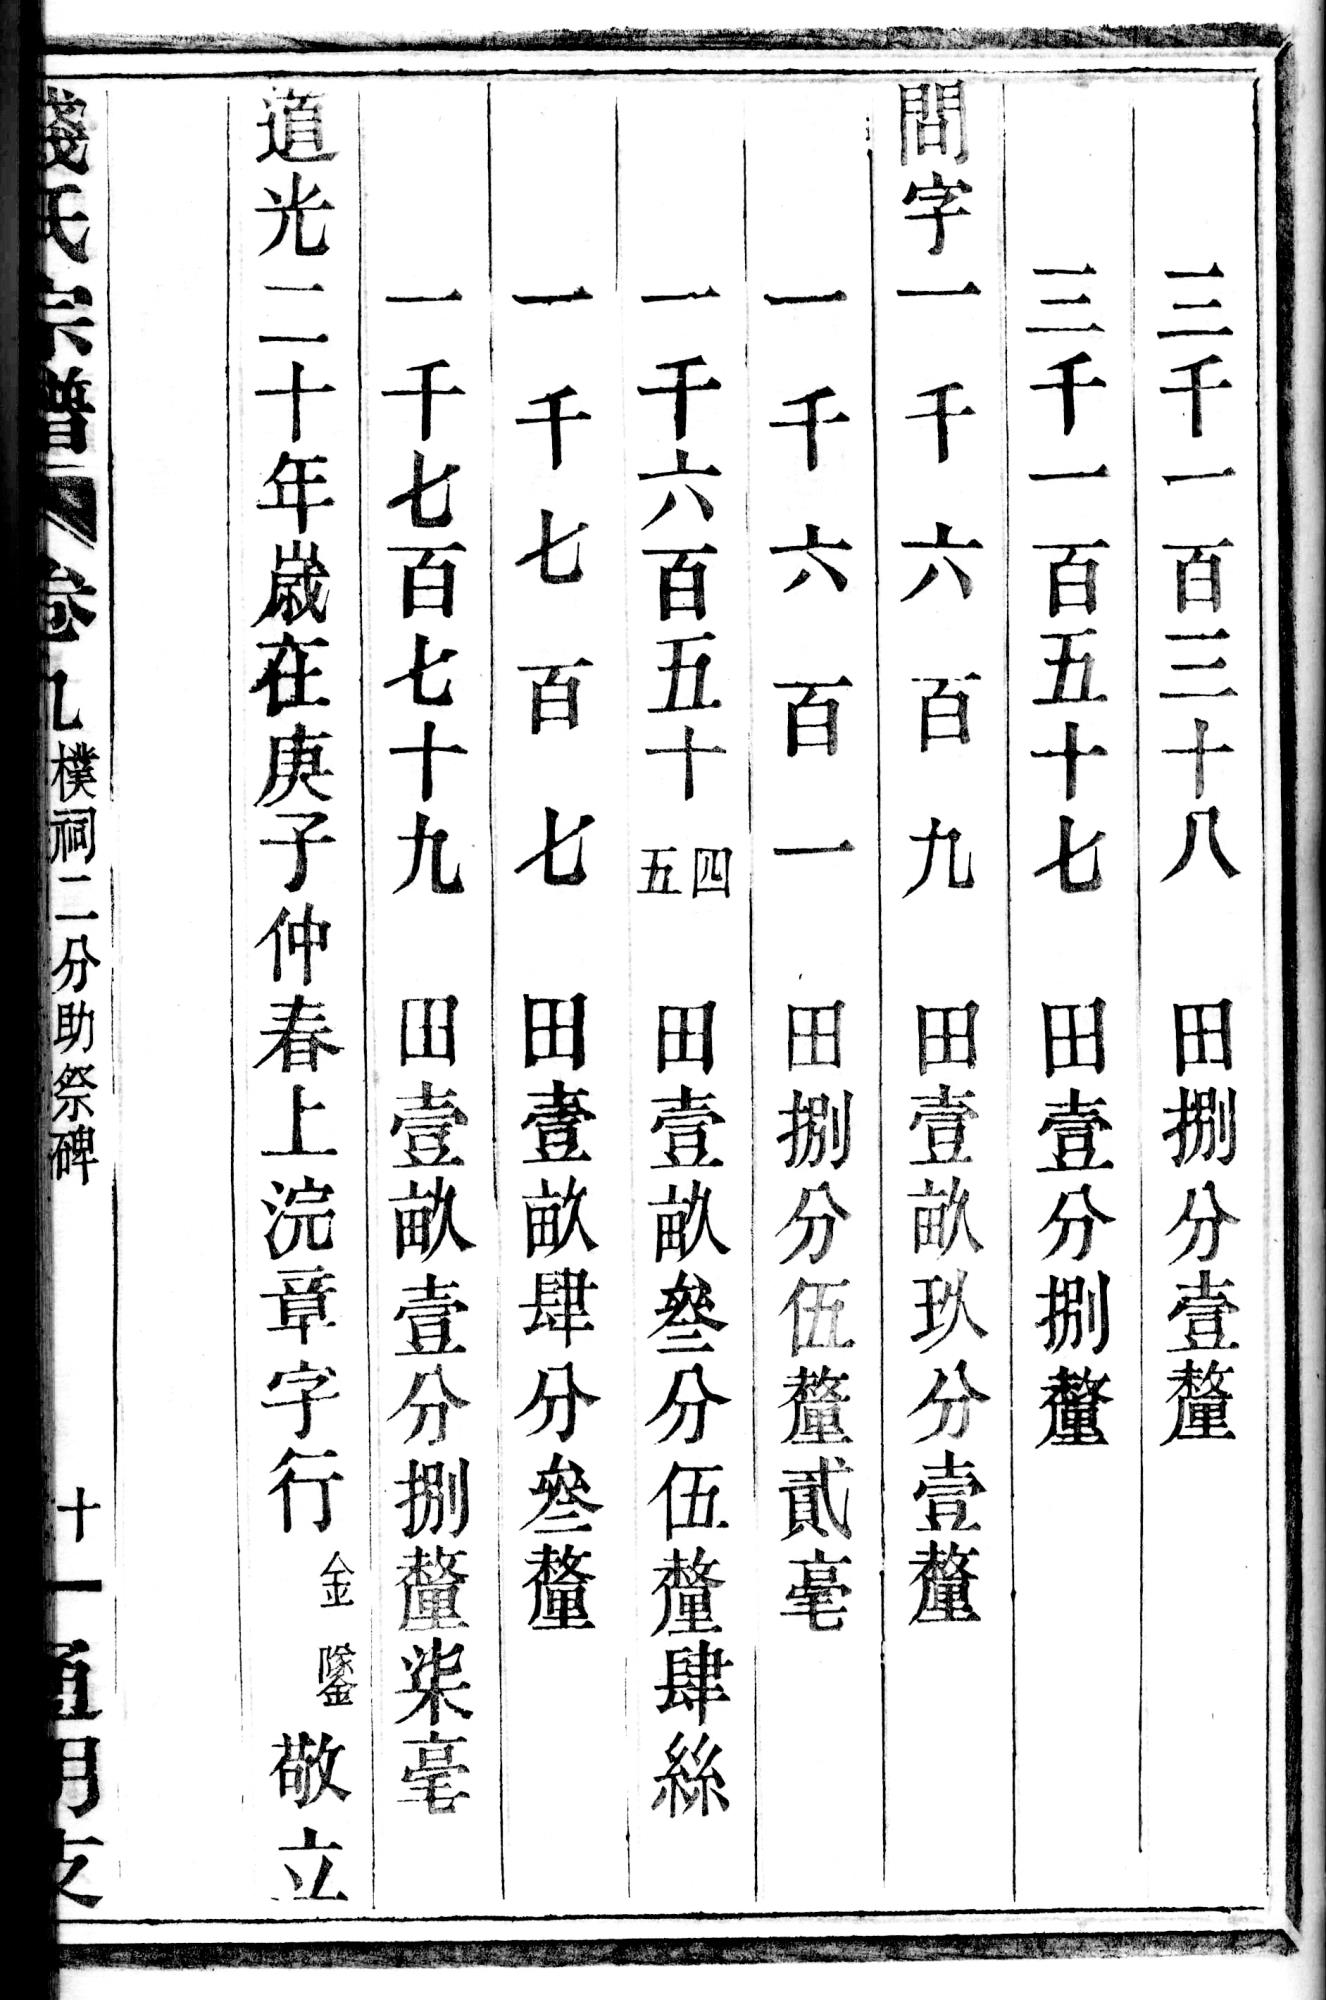 三千一百三十八　田捌分壹釐
三千一百五十七　田壹分捌釐
問字一千六百九　田壹畝玖分壹釐
一千六百一　田捌分伍釐貳毫
一千六百五十四五　田壹畝叄分伍釐肆絲
一千七百七　田壹畝肆分叄釐
一千七百七十九　田壹畝壹分捌釐柒毫
道光二十年歲在庚子仲春上浣章字行金鑒敬立
錢氏宗譜　卷九　樸祠二分助祭碑　十一　通明支